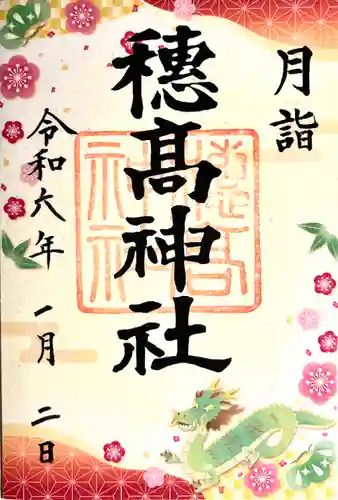 月詣
穂髙神社
令和六年 一月 二日